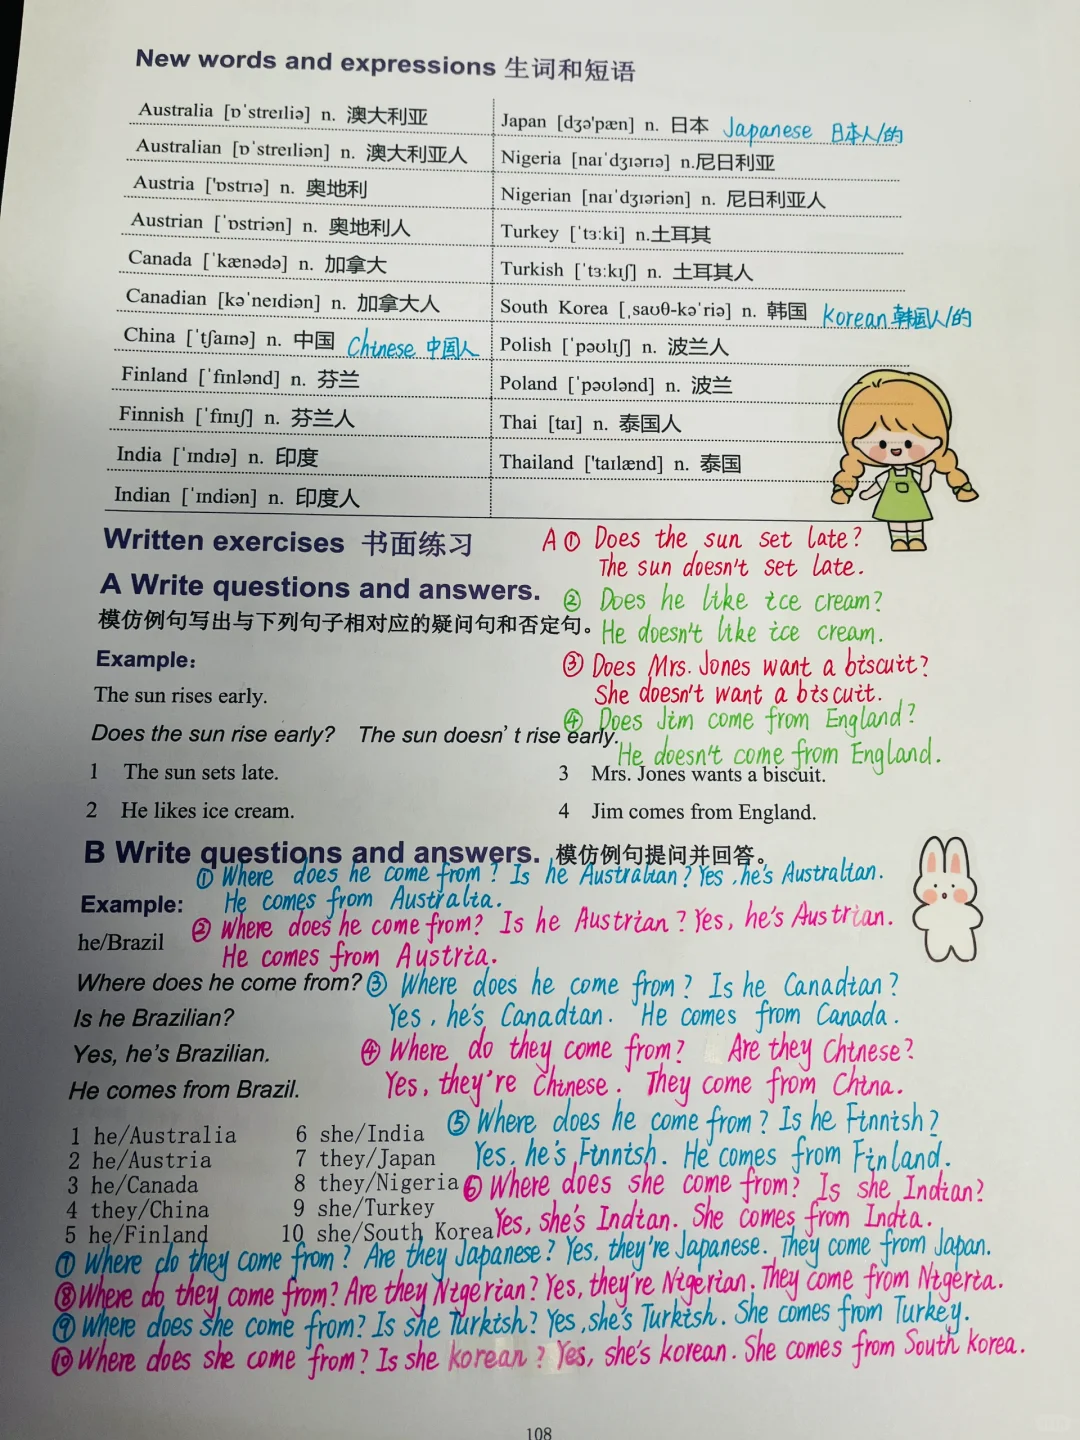 New words and expressions 生词和短语
Australia [ɒˈstreɪliə] n. 澳大利亚
Australian [ɒˈstreɪliən] n. 澳大利亚人
Austria ['ɒstrɪə] n. 奥地利
Austrian [ˈɒstriən] n. 奥地利人
Canada [ˈkænədə] n. 加拿大
Canadian [kəˈneɪdiən] n. 加拿大人
China [ˈtʃaɪnə] n. 中国 Chinese 中国人
Finland [ˈfɪnlənd] n. 芬兰
Finnish [ˈfɪnɪʃ] n. 芬兰人
India [ˈɪndɪə] n. 印度
Indian [ˈɪndiən] n. 印度人
Japan [dʒə'pæn] n. 日本 Japanese 日本人/的
Nigeria [naɪˈdʒɪərɪə] n.尼日利亚
Nigerian [naɪˈdʒɪəriən] n. 尼日利亚人
Turkey [ˈtɜːki] n.土耳其
Turkish [ˈtɜːkɪʃ] n. 土耳其人
South Korea [ˌsaʊθ-kəˈriə] n. 韩国 korean 韩国人/的
Polish [ˈpəʊlɪʃ] n. 波兰人
Poland [ˈpəʊlənd] n. 波兰
Thai [taɪ] n. 泰国人
Thailand ['taɪlænd] n. 泰国
Written exercises 书面练习
A Write questions and answers.
模仿例句写出与下列句子相对应的疑问句和否定句。
Example:
The sun rises early.
Does the sun rise early? The sun doesn't rise early.
1 The sun sets late.
2 He likes ice cream.
3 Mrs. Jones wants a biscuit.
4 Jim comes from England.
A ① Does the sun set late?
The sun doesn't set late.
② Does he like ice cream?
He doesn't like ice cream.
③ Does Mrs. Jones want a biscuit?
She doesn't want a biscuit.
④ Does Jim come from England?
He doesn't come from England.
B Write questions and answers. 模仿例句提问并回答。
Example:
he/Brazil
Where does he come from?
Is he Brazilian?
Yes, he's Brazilian.
He comes from Brazil.
1 he/Australia
2 he/Austria
3 he/Canada
4 they/China
5 he/Finland
6 she/India
7 they/Japan
8 they/Nigeria
9 she/Turkey
10 she/South Korea
① Where does he come from? Is he Australian? Yes, he's Australian.
He comes from Australia.
② Where does he come from? Is he Austrian? Yes, he's Austrian.
He comes from Austria.
③ Where does he come from? Is he Canadian?
Yes, he's Canadian. He comes from Canada.
④ Where do they come from? Are they Chinese?
Yes, they're Chinese. They come from China.
⑤ Where does he come from? Is he Finnish?
Yes, he's Finnish. He comes from Finland.
⑥ Where does she come from? Is she Indian?
Yes, she's Indian. She comes from India.
⑦ Where do they come from? Are they Japanese? Yes, they're Japanese. They come from Japan.
⑧ Where do they come from? Are they Nigerian? Yes, they're Nigerian. They come from Nigeria.
⑨ Where does she come from? Is she Turkish? Yes, she's Turkish. She comes from Turkey.
⑩ Where does she come from? Is she korean? Yes, she's korean. She comes from South korea.
108